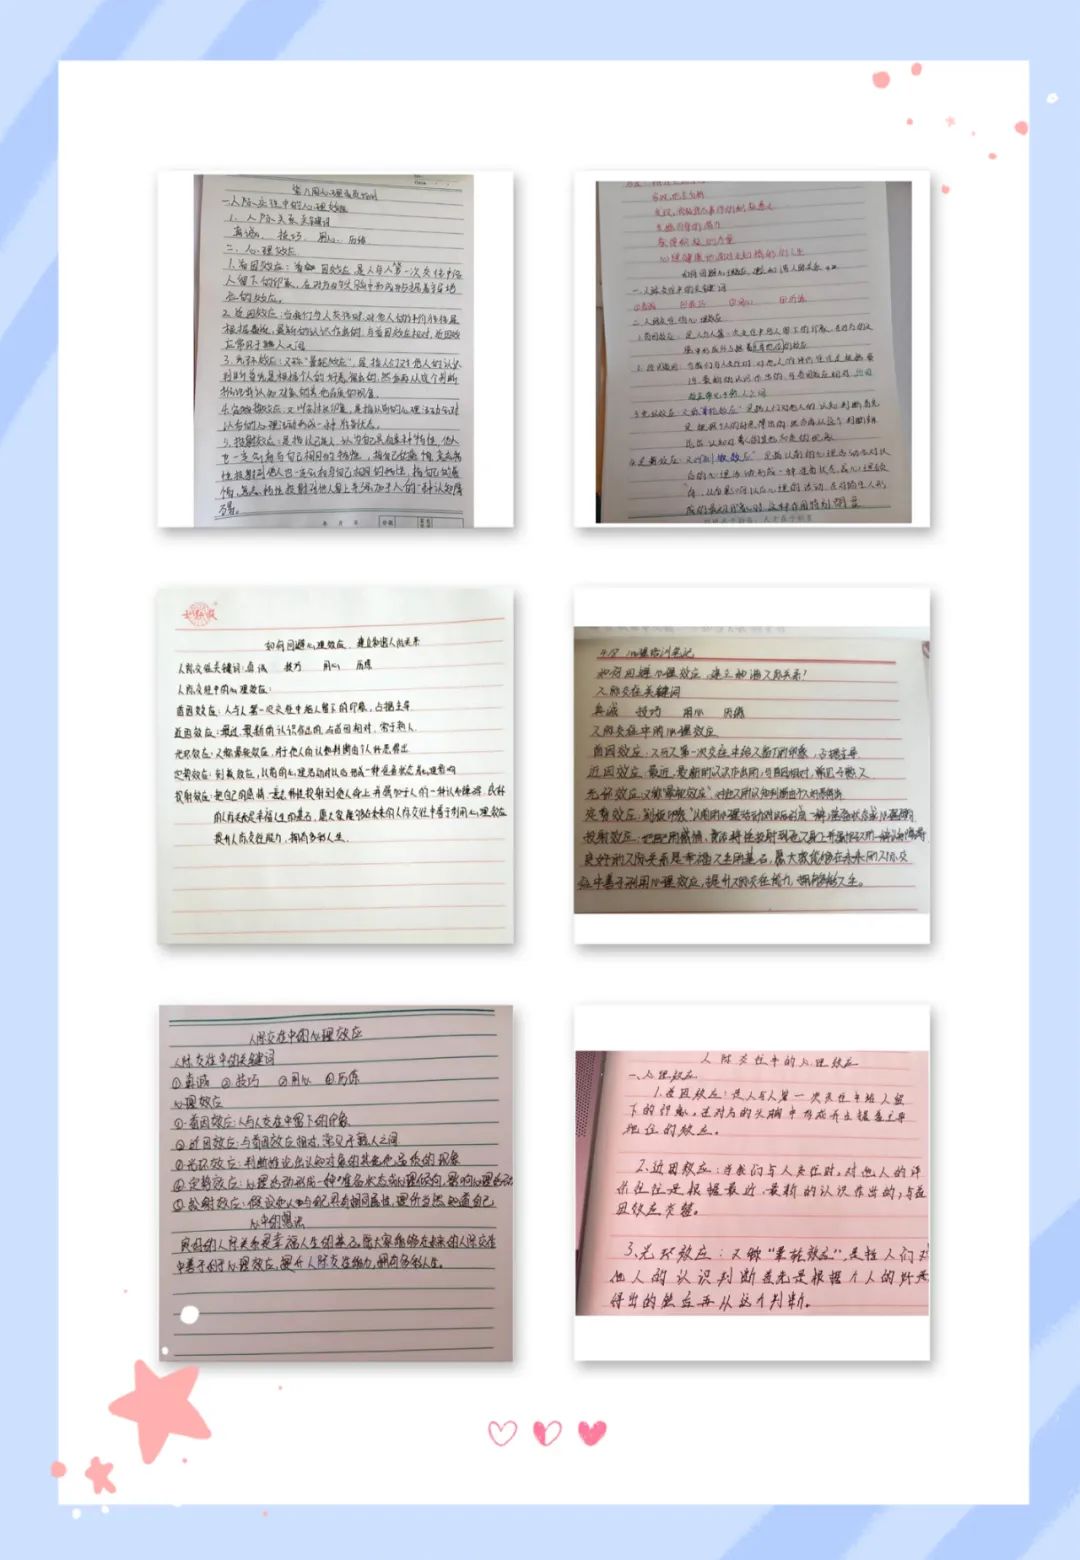 第八周心理委员培训
一、人际交往中的心理效应
1、人际关系关键词
真诚、技巧、用心、历练
二、心理效应
1、首因效应：首因效应是人与人第一次交往中给
人留下的印象，在对方的头脑中形成并占据着主导地
位的效应。
2、近因效应：当我们与人交往时，对他人的评价往往是
根据最近、最新的认识作出的，与首因效应相对，近因效
应常见于熟人之间
3、光环效应：又称"晕轮效应"，是指人们对他人的认知
判断首先是根据个人的好恶得出的，然后再从这个判断
推论出认知对象的其他品质的现象。
4、定势效应：又叫刻板印象，是指以前的心理活动会对
以后的心理活动形成一种准备状态
5、投射效应：是指以己度人，认为自己具有某种特性，他人
也一定会有与自己相同的特性，把自己的感情、意志、特
性投射到他人
年 月 日
真诚 技巧 用心 历练
一、人际交往中的关键词
①真诚 ②技巧 ③用心 ④历练
二、人际交往的心理效应
1、首因效应：是人与人第一次交往中给人留下的印象，在对方的头
脑中形成并占据着主导地位的效应
2、近因效应：当我们与人交往时，对他人的评价往往是根据最
近、最新的认识作出的，与首因效应相对，近因
效应常见于熟人之间
3、光环效应：又称"晕轮效应"是指人们对他人的认知判断首先
是根据个人的好恶得出的，然后再从这个判断推
论出认知对象的其他品质的现象
如何回避心理效应，建立和谐人际关系
人际交往关键词：真诚 技巧 用心 历练
人际交往中的心理效应：
首因效应：人与人第一次交往中给人留下的印象，占据主导
近因效应：最近、最新的认识作出的，与首因相对，常于熟人
光环效应：又称晕轮效应，对于他人的认知判断由个人好恶得出
定势效应：刻板效应，以前的心理活动对以后形成一种准备状态或心理倾向
投射效应：把自己的感情、意志、特性投射到他人身上并强加于人的一种认知障碍，良好
的人际关系是幸福人生的基石，愿大家能够在未来的人际交往中善于利用心理效应
提升人际交往能力，拥有多彩人生.
4.18 心理培训笔记
如何回避心理效应，建立和谐人际关系？
人际交往关键词
真诚 技巧 用心 历练
人际交往中的心理效应
首因效应：人与人第一次交往中给人留下的印象，占据主导
近因效应：最近、最新的认识作出的，与首因相对，常见于熟人
光环效应：又称"晕轮效应"，对他人的认知判断由个人好恶得出
定势效应：刻板印象"以前的心理活动对以后形成一种准备状态或心理倾向
投射效应：把自己的感情、意志、特性投射到他人身上并强加于人的一种认知障碍
良好的人际关系是幸福人生的基石，愿大家能够在未来的人际交
往中善于利用心理效应，提升人际交往能力，拥有多彩人生。
人际交往中的心理效应
人际交往中的关键词
①真诚 ②技巧 ③用心 ④历练
心理效应
①首因效应：人与人交往中留下的印象
②近因效应：与首因效应相对，常见于熟人之间
③光环效应：判断推论出认知对象的其他品质的现象
④定势效应：心理活动形成一种准备状态或心理倾向，影响心理活动
⑤投射效应：假设他人与己具有相同属性，理所当然知道自己
心中的想法
良好的人际关系是幸福人生的基石，愿大家能够在未来的人际交往
中善于利用心理效应，提升人际交往能力，拥有多彩人生。
人际交往中的心理效应
一、心理效应
1、首因效应：是人与人第一次交往中给人留
下的印象，在对方的头脑中形成并占据着主导
地位的效应。
2、近因效应：当我们与人交往时，对他人的评
价往往是根据最近、最新的认识作出的，与首
因效应相对。
3、光环效应：又称"晕轮效应"，是指人们对
他人的认识判断首先是根据个人的好恶
得出的然后再从这个判断。